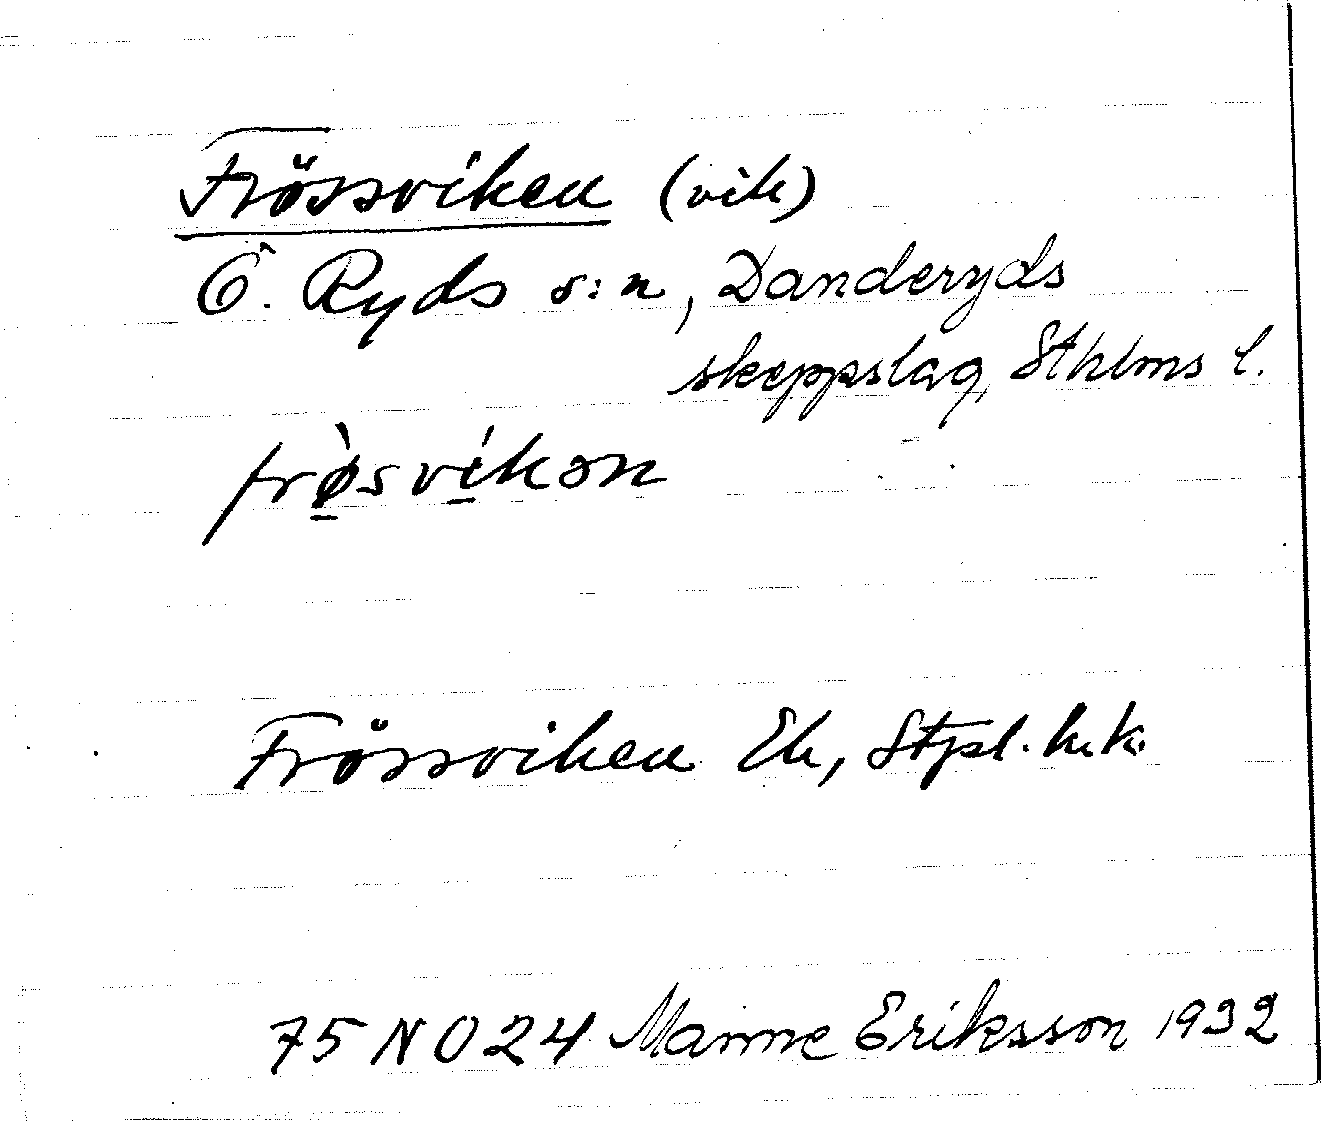 Frössviken (vik)
Ö. Ryds s:n, Danderyds
skeppslag, Sthlms l.
frø̀svíkən
Frössviken Ek, Stpl. h.k.
75 NO 24 Manne Eriksson 1932